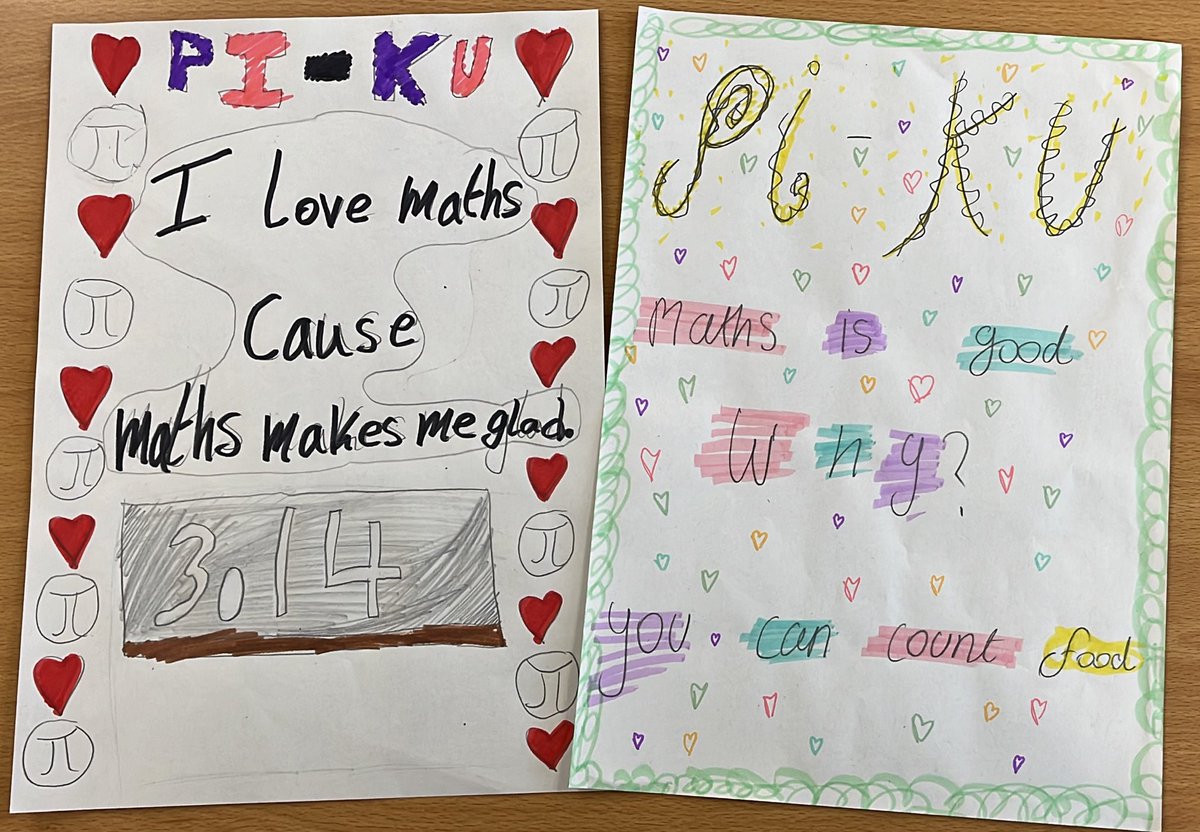 PI-KU
I Love maths
Cause
maths makes me glad.
3.14
π
π
π
π
π
π
π
π
π
Pi-KU
Maths is good
Why?
you can count food